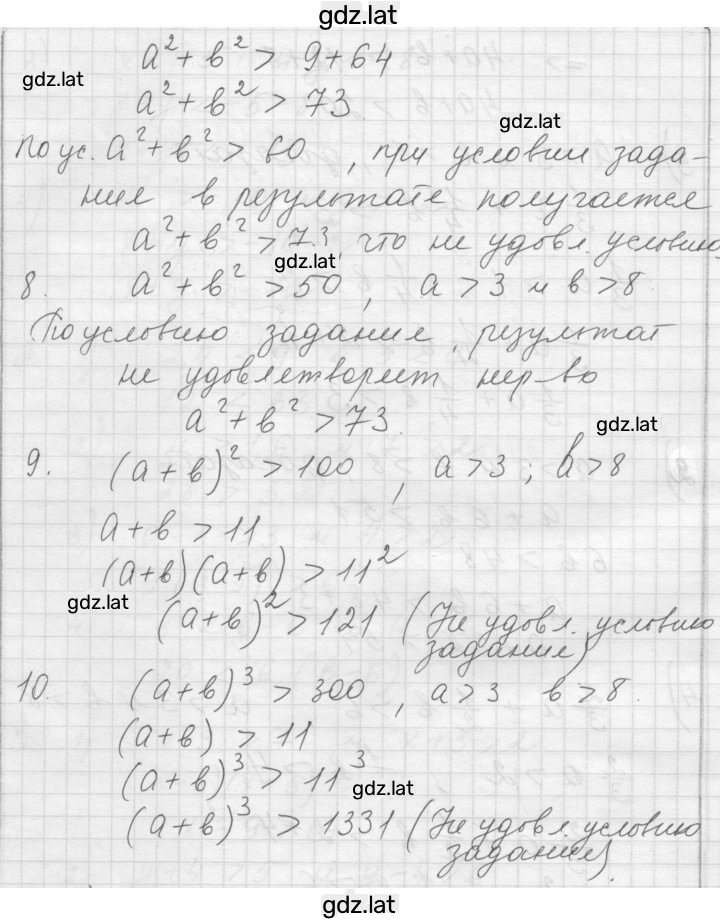 gdz.lat
a² + в² > 9+64
gdz.lat
a² + в² > 73
gdz.lat
По ус. a² + в² > 60, при условии зада-
ния в результате получается
a² + в² > 73, что не удовл. условию.
gdz.lat
8. a² + в² > 50, a > 3 и в > 8
По условию задания, результат
не удовлетворяет нер-во
a² + в² > 73.
gdz.lat
9. (a + в)² > 100, a > 3; в > 8
a + в > 11
(a+в)(a+в) > 11²
gdz.lat
(a+в)² > 121 (Не удовл. условию
задания)
10. (a+в)³ > 300, a > 3 в > 8.
(a+в) > 11
(a+в)³ > 11³
gdz.lat
(a+в)³ > 1331 (Не удовл. условию
задания).
gdz.lat